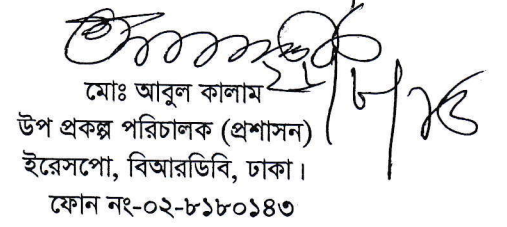 মোঃ আবুল কালাম
উপ প্রকল্প পরিচালক (প্রশাসন)
ইরেসপো, বিআরডিবি, ঢাকা।
ফোন নং-০২-৮১৮০১৪৩